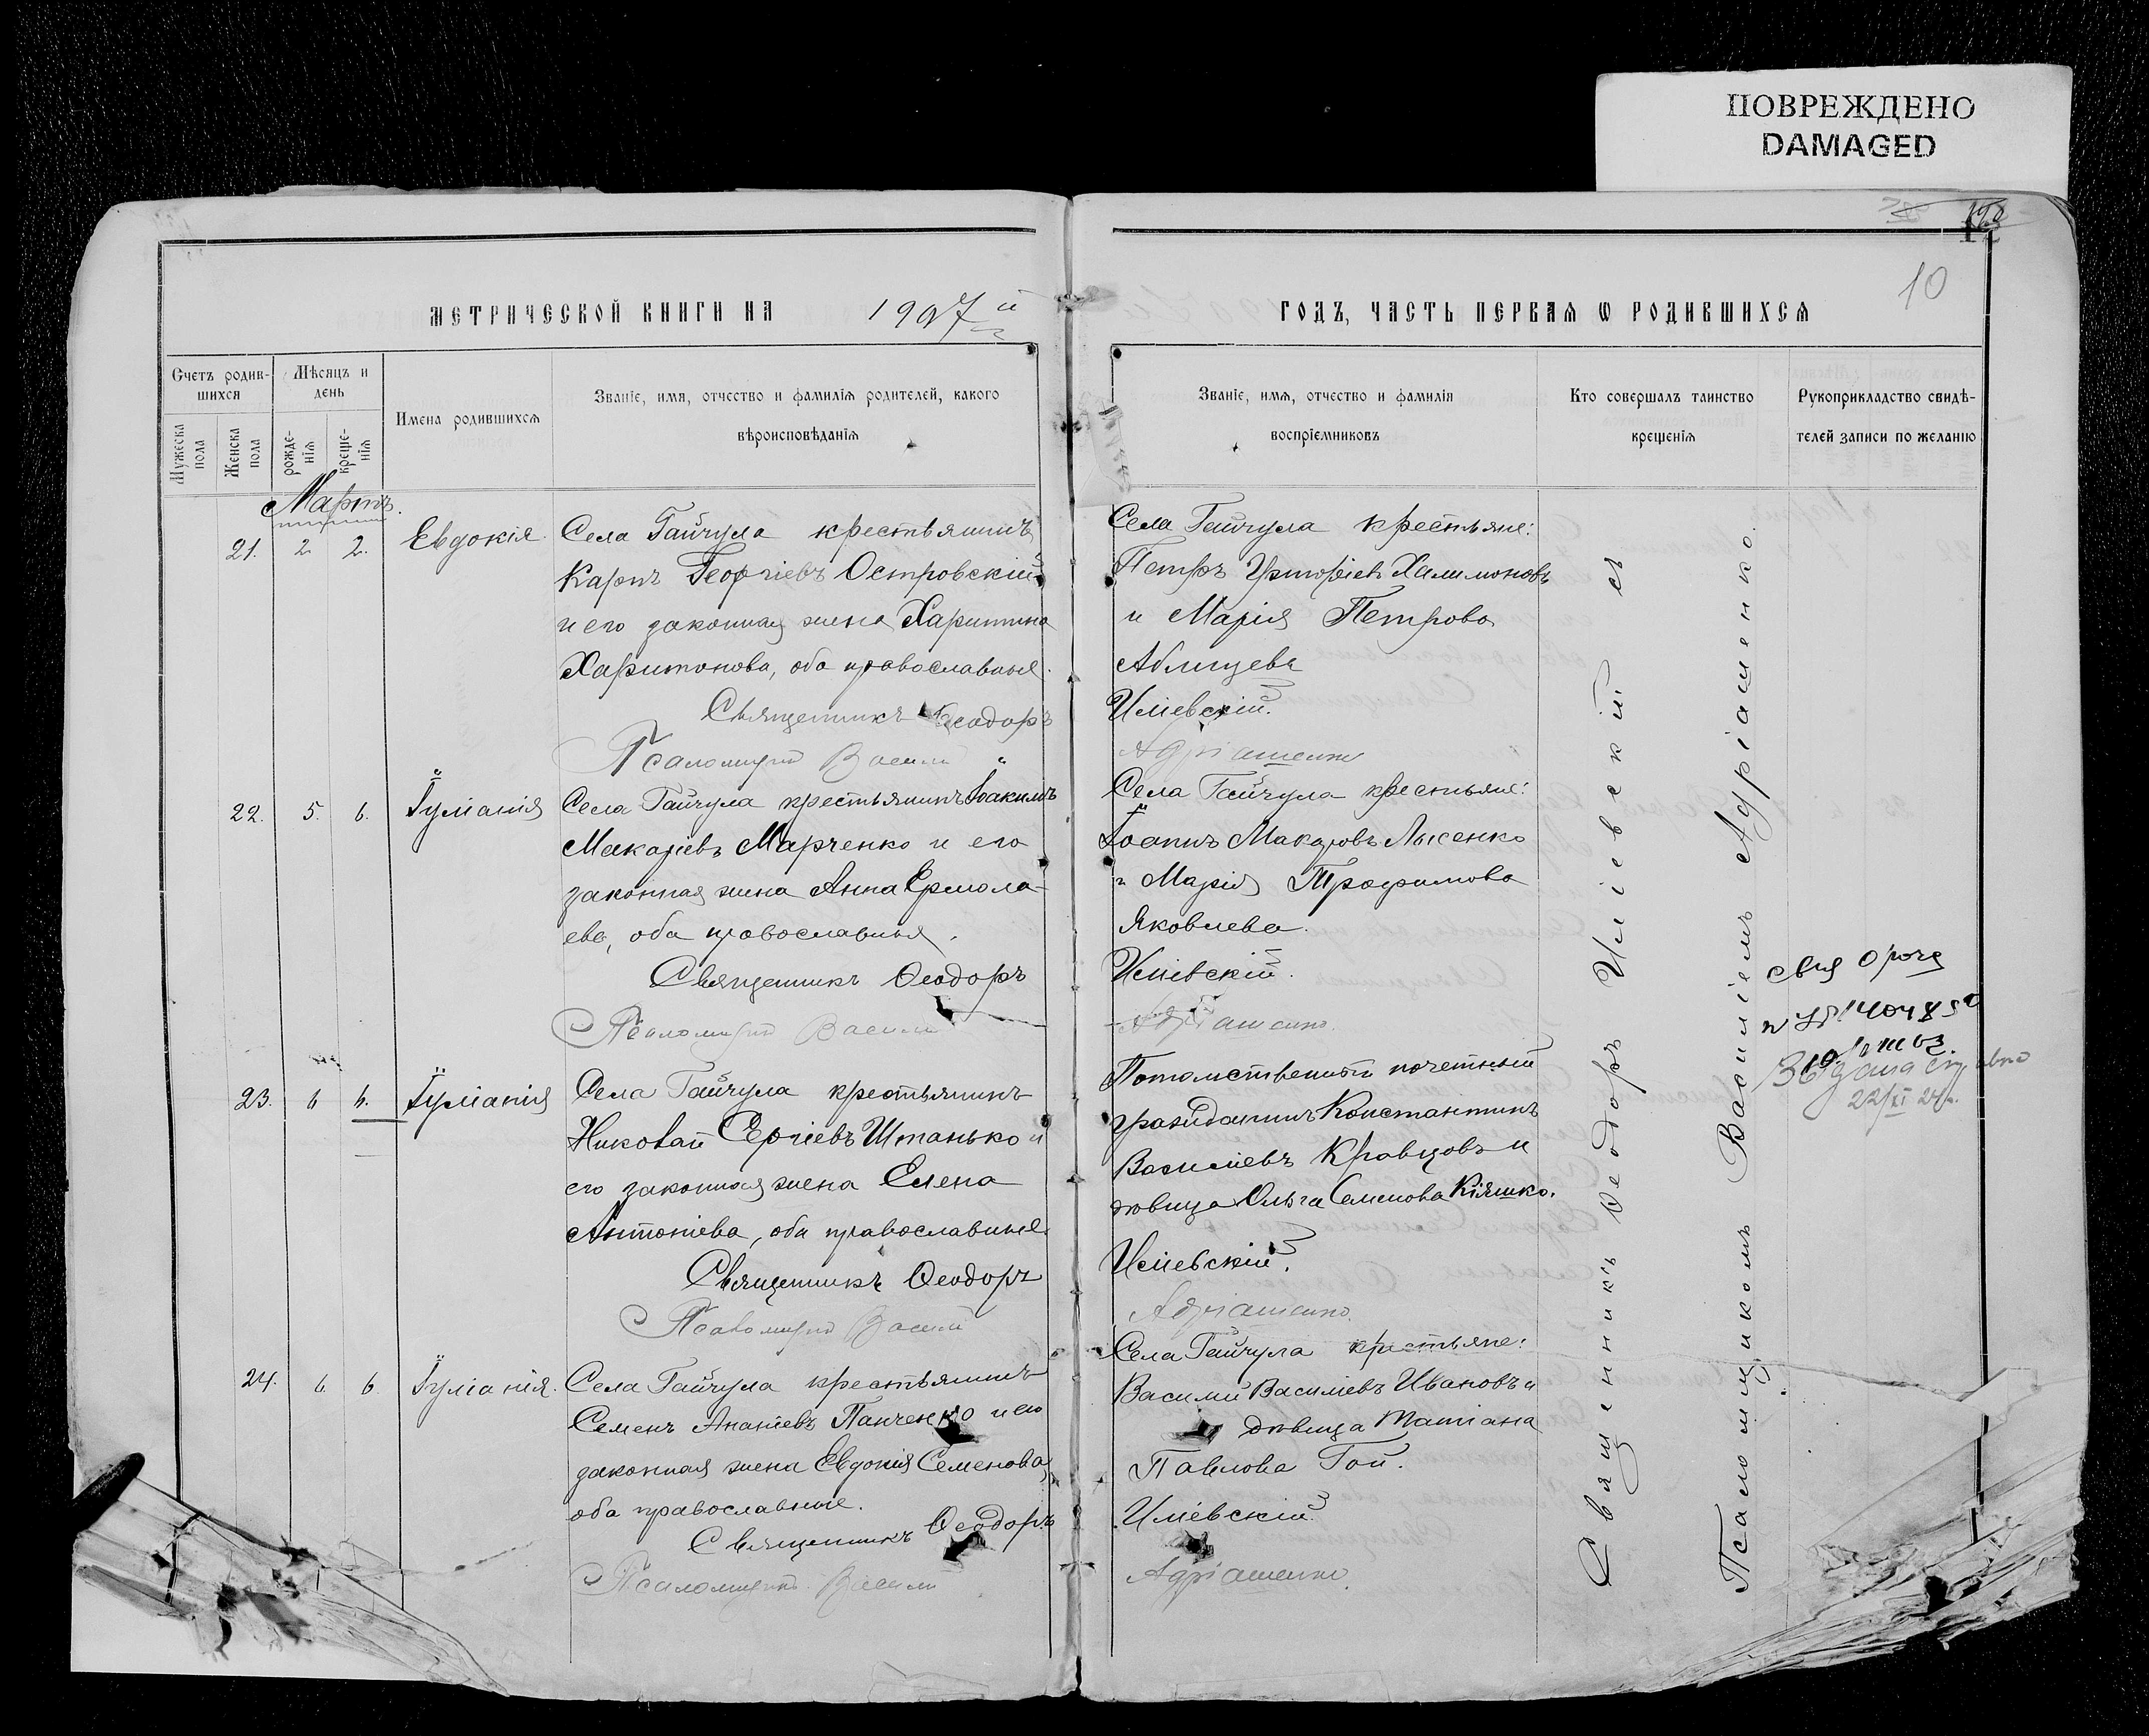 ПОВРЕЖДЕНО
DAMAGED
10
МЕТРИЧЕСКОЙ КНИГИ НА 1907й
ГОДЪ, ЧАСТЬ ПЕРВАЯ Ѡ РОДИВШИХСЯ
Счетъ родив-
шихся
Мѣсяцъ и
день
Мужеска
пола
Женска
пола
рожде-
нія
креще-
нія
Имена родившихся
Званіе, имя, отчество и фамилія родителей, какого
вѣроисповѣданія
Званіе, имя, отчество и фамилія
воспріемниковъ
Кто совершалъ таинство
крещенія
Рукоприкладство свидѣ-
телей записи по желанію
Мартъ.
21. 2. 2. Евдокія.
Села Гайчула крестьянинъ
Карпъ Георгіевъ Островскій
и его законная жена Харитина
Харитонова, оба православные.
Священникъ Ѳеодоръ
Псаломщикъ Василій
Села Гайчула крестьяне:
Петръ Халимоновъ
и Марія Петрова
Илліевскій.
Адріашенко
22. 5. 6. Іуліанія
Села Гайчула крестьянинъ Іоакимъ
Макаріевъ Марченко и его
законная жена Анна Ермола-
ева, оба православныя.
Священникъ Ѳеодоръ
Псаломщикъ Василій
Села Гайчула крестьяне:
Іоаннъ Макаровъ Лысенко
и Марія Трофимова
Яковлева.
Илліевскій.
Адріашенко
23. 6 6. Іуліанія
Села Гайчула крестьянинъ
Николай Сергіевъ Штанько и
его законная жена Елена
Антоніева, оба православные.
Священникъ Ѳеодоръ
Псаломщикъ Василій
Потомственный почетный
гражданинъ Константинъ
Василіевъ Кравцовъ и
дѣвица Ольга Семенова Кіяшко.
Илліевскій.
Адріашенко.
24. 6. 6 Іуліанія.
Села Гайчула крестьянинъ
Семенъ Ананіевъ Панченко и его
законная жена Евдокія Семенова,
оба православные.
Священникъ Ѳеодоръ
Псаломщикъ Василій
Села Гайчула крестьяне:
Василій Василіевъ Ивановъ и
дѣвица Татіана
Павлова Гой.
Илліевскій
Адріашенко.
Священникъ Ѳеодоръ Илліевскій съ
Псаломщикомъ Василіемъ Адріашенко.